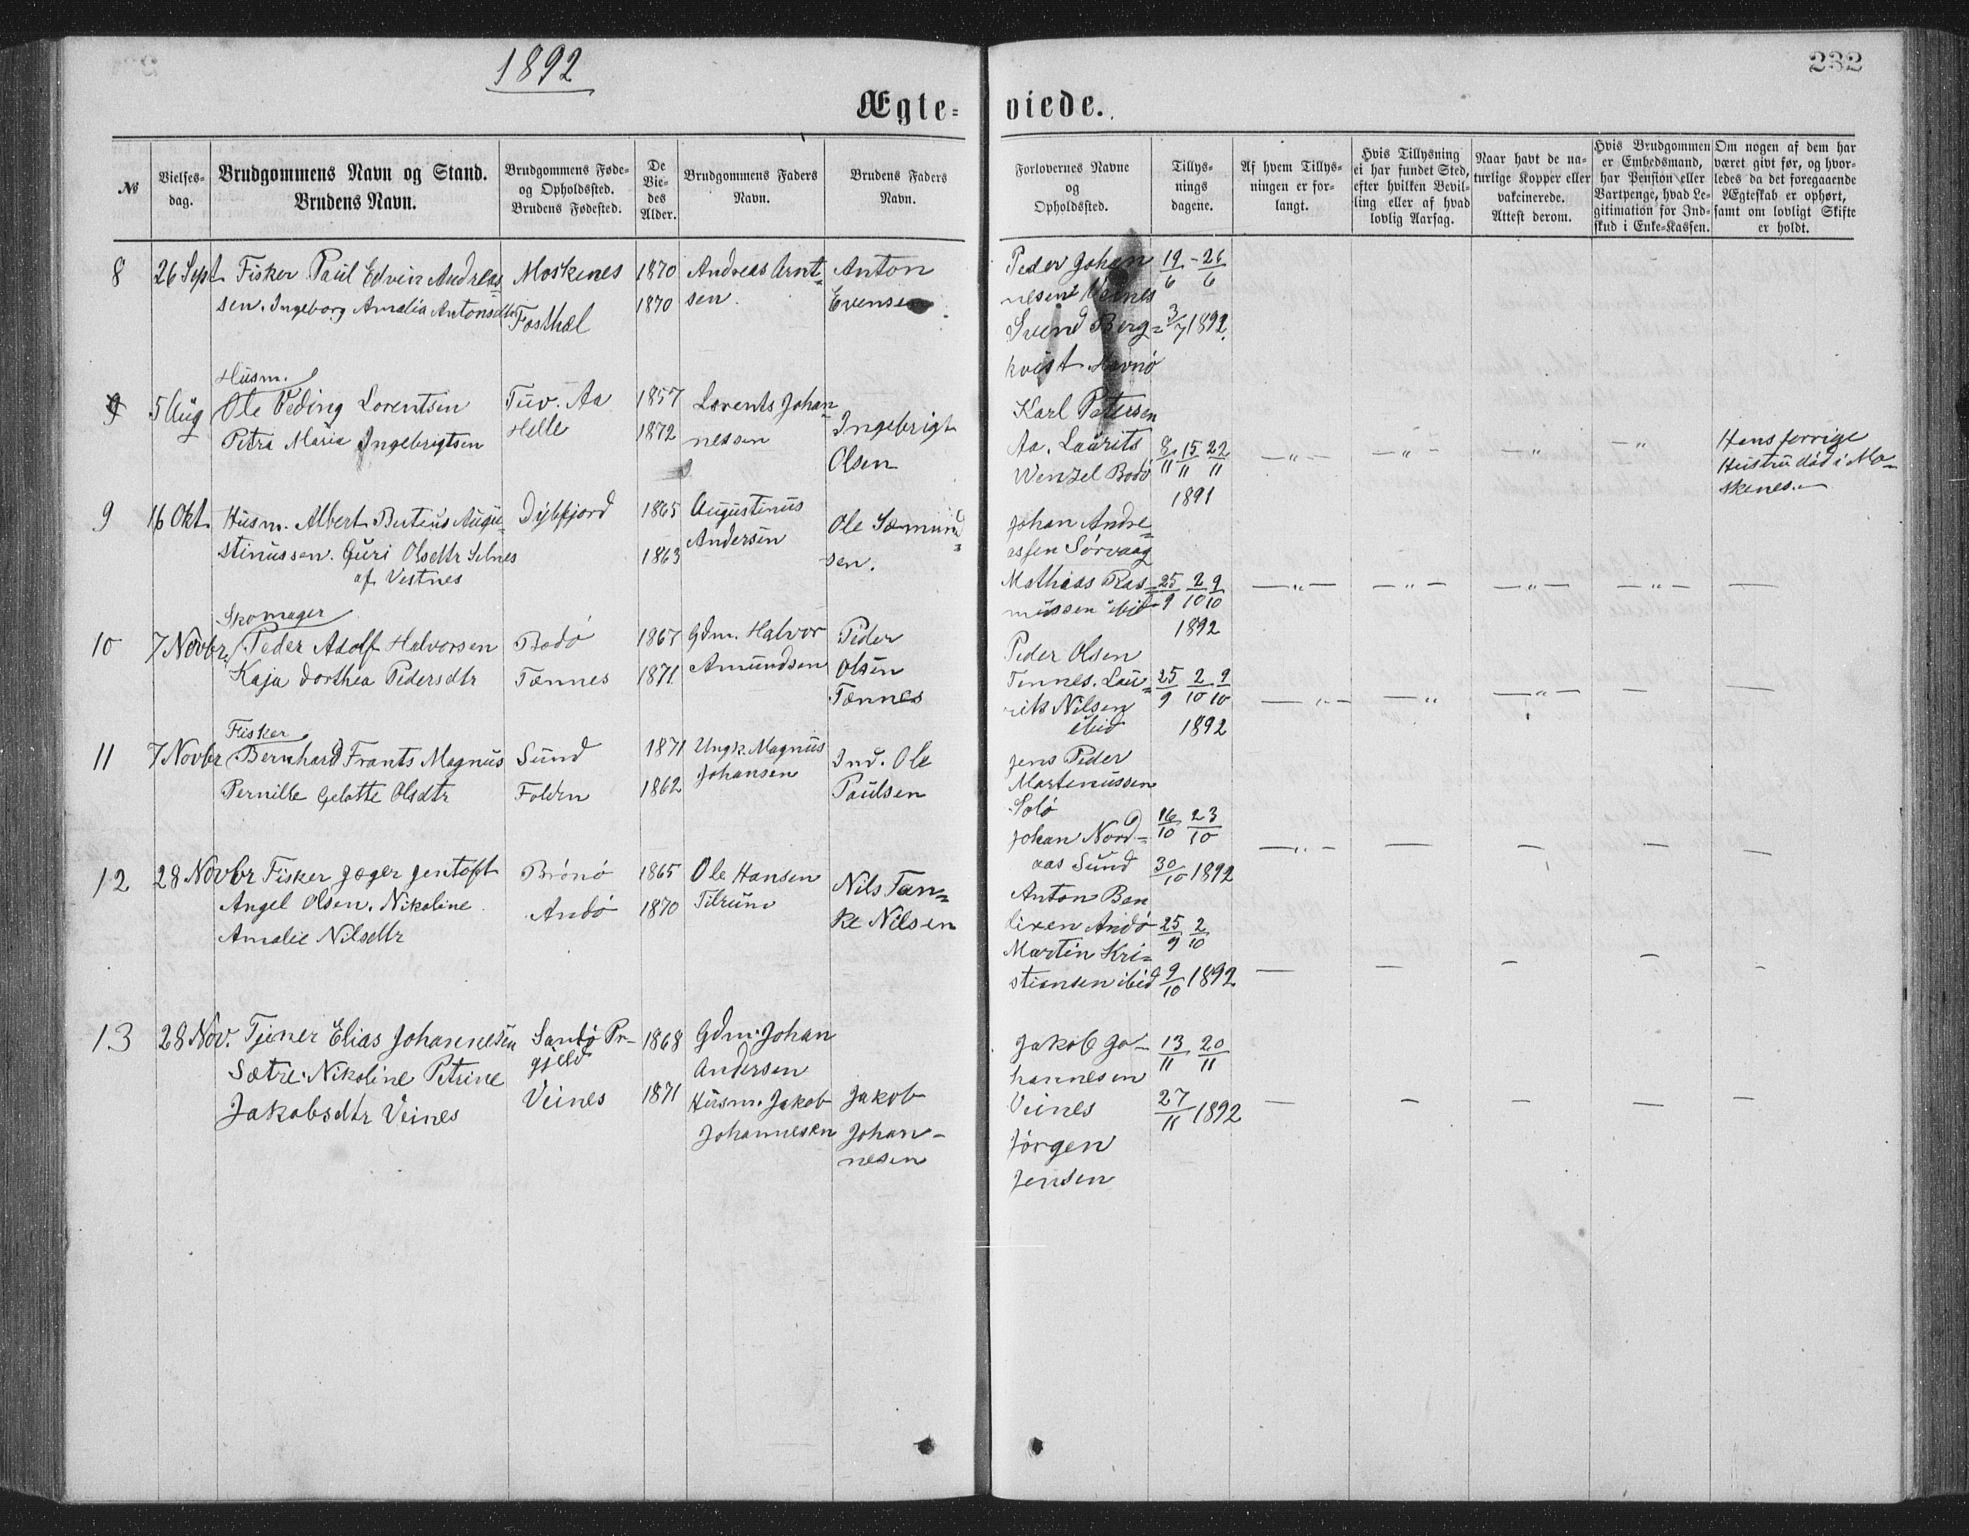 1892
232
Ægte-viede.
№
Vielses-
dag.
Brudgommens Navn og Stand.
Brudens Navn.
Brudgommens Føde-
og Opholdssted.
Brudens Fødested.
De
Vie-
des
Alder.
Brudgommens Faders
Navn.
Brudens Faders
Navn.
Forlovernes Navne
og
Opholdssted.
Tillys-
nings
dagene.
Af hvem Tillys-
ningen er for-
langt.
Hvis Tillysning
ei har fundet Sted,
efter hvilken Bevil-
ling eller af hvad
lovlig Aarsag.
Naar havt de na-
turlige Kopper eller
vakcinerede.
Attest derom.
Hvis Brudgommen
er Embedsmand,
har Pension eller
Vartpenge, hvad Le-
gitimation for Ind-
skud i Enke-Kassen.
Om nogen af dem har
været givt før, og hvor-
ledes da det foregaaende
Ægteskab er ophørt,
samt om lovligt Skifte
er holdt.
8
26 Sept
Fisker Paul Edvin Andreas-
sen. Ingeborg Amalia Antonsdtr
Moskenes
Fosthal
1870
1870
Andreas Arnt-
sen.
Anton
Evensen.
Peder Johan
nesen
Svend Berg-
kvist Havnö
19/6 - 26/6
3/7 1892.
9
5 Aug
Husm.
Ole Peding Lorentsen
Petra Maria Ingebrigtsen
Tuv. Aa
Helle
1857
1872
Lorents Johan
nessen
Ingebrigt
Olsen
Karl Petersen
Aa. Laurits
Wenzel Bodö
8/11 15/11 22/11
1891
— " —
— " —
— " —
— " —
Hans forrige
Hustru död i Mo-
skenes.
9
16 Okt.
Husm. Albert Butius Augu-
stinussen. Guri Olsdtr Selnes
af Vestnes
Dybfjord
1865
1863
Augustinus
Andersen
Ole Sæmund-
sen.
Johan Andre-
assen Sörvaag
Mathias Ras-
mussen ibid
25/9 2/10 9/10
1892
— " —
— " —
— " —
—
—
10
7 Novbr.
Skomager
Peder Adolf Halvorsen
Kaja Dorthea Pedersdtr
Bodö
Tönnes
1867
1871
Gdm. Halvor
Amundsen
Peder
Olsen
Tonnes
Peder Olsen
Tönnes. Lau-
rits Nilsen
ibid
25/9 2/10 9/10
1892
— " —
— "
— " —
—
—
11
7 Novbr
Fisker
Bernhard Frants Magnus
Pernille Gelotte Olsdtr
Sund
Folden
1871
1862
Ungk. Magnus
Johansen
Ind. Ole
Paulsen
Jens Peder
Martinussen
Solö
Johan Nord-
aas Sund
16/10 23/10
30/10 1892
— " —
—
—
—
—
12
28 Novbr
Fisker Jæger Jentoft
Angel Olsen. Nikoline
Amalie Nilsdtr
Brönö
Andö
1865
1870
Ole Hansen
Tilrum
Nils Tan-
ke Nilsen
Anton Ben
dixen Andö
Martin Kri-
stiansen ibid
25/9 2/10
9/10 1892
—
—
—
—
—
13
28 Nov.
Tjener Elias Johannesen
Sætre. Nikoline Petrine
Jakobsdtr Veines
Sandö Pr-
gjeld
Veines
1868
1871
Gdm. Johan
Andersen
Husm. Jakob
Johannesen
Jakob
Johan-
nesen
Jakob Jo-
hannesen
Veines
Jörgen
Jensen
13/11 20/11
27/11 1892
—
—
—
—
—